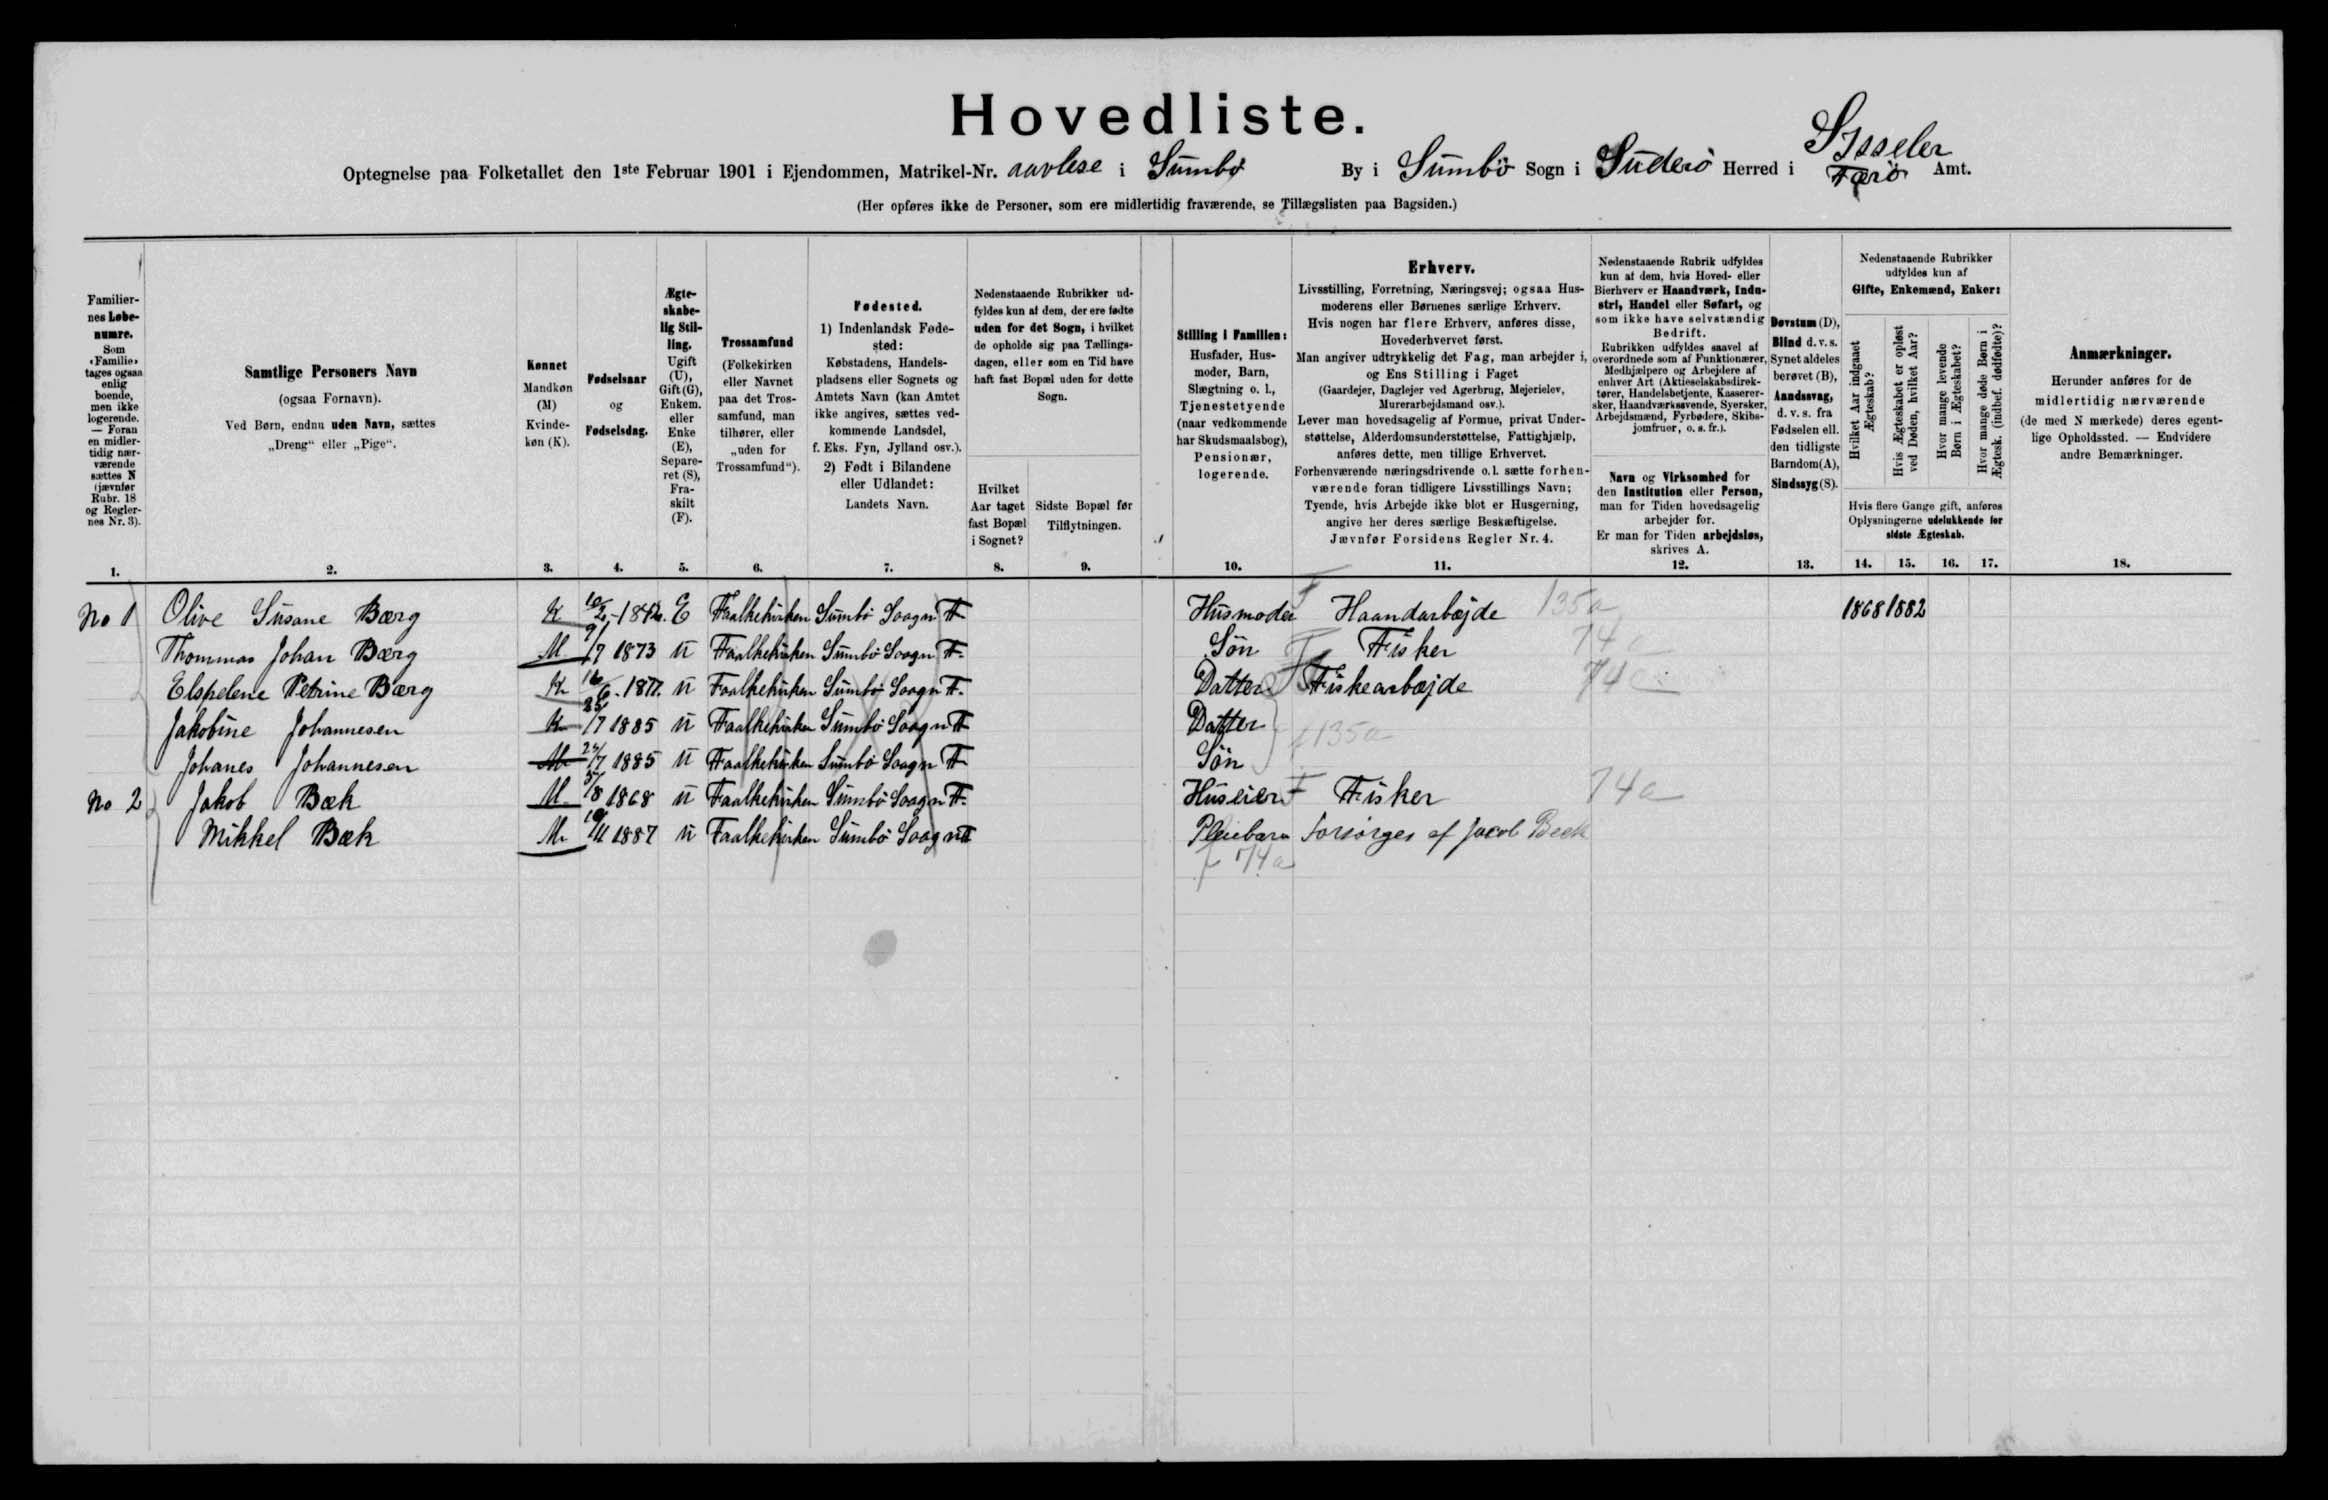 Hovedliste.
Optegnelse paa Folketallet den 1ste Februar 1901 i Ejendommen, Matrikel-Nr. aavlese i Sumbø By i Sumbø Sogn i Suderø Herred i Sysseler Færø Amt.
(Her opføres ikke de Personer, som ere midlertidig fraværende, se Tillægslisten paa Bagsiden.)
Familiernes Løbenumre.
Som «Familie» tages ogsaa enlig boende, men ikke logerende. — Foran en midlertidig nærværende sættes N (jævnfør Rubr. 18 og Reglernes Nr. 3).
Samtlige Personers Navn
(ogsaa Fornavn).
Ved Børn, endnu uden Navn, sættes
„Dreng“ eller „Pige“.
Kønnet
Mandkøn (M)
Kvindekøn (K).
Fødselsaar
og
Fødselsdag.
Ægteskabelig Stilling.
Ugift (U), Gift (G), Enkem. eller Enke (E), Separeret (S), Fraskilt (F).
Trossamfund
(Folkekirken eller Navnet paa det Trossamfund, man tilhører, eller „uden for Trossamfund“).
Fødested.
1) Indenlandsk Fødested:
Købstadens, Handelspladsens eller Sognets og Amtets Navn (kan Amtet ikke angives, sættes vedkommende Landsdel, f. Eks. Fyn, Jylland osv.).
2) Født i Bilandene eller Udlandet:
Landets Navn.
Nedenstaaende Rubrikker udfyldes kun af dem, der ere fødte uden for det Sogn, i hvilket de opholde sig paa Tællingsdagen, eller som en Tid have haft fast Bopæl uden for dette Sogn.
Hvilket Aar taget fast Bopæl i Sognet?
Sidste Bopæl før Tilflytningen.
Stilling i Familien:
Husfader, Husmoder, Barn, Slægtning o. l., Tjenestetyende (naar vedkommende har Skudsmaalsbog), Pensionær, logerende.
Erhverv.
Livsstilling, Forretning, Næringsvej; ogsaa Husmoderens eller Børnenes særlige Erhverv.
Hvis nogen har flere Erhverv, anføres disse, Hovederhvervet først.
Man angiver udtrykkelig det Fag, man arbejder i, og Ens Stilling i Faget
(Gaardejer, Daglejer ved Agerbrug, Mejerielev, Murerarbejdsmand osv.).
Lever man hovedsagelig af Formue, privat Understøttelse, Alderdomsunderstøttelse, Fattighjælp, anføres dette, men tillige Erhvervet.
Forhenværende næringsdrivende o. l. sætte forhenværende foran tidligere Livsstillings Navn;
Tyende, hvis Arbejde ikke blot er Husgerning, angive her deres særlige Beskæftigelse.
Jævnfør Forsidens Regler Nr. 4.
Nedenstaaende Rubrik udfyldes kun af dem, hvis Hoved- eller Bierhverv er Haandværk, Industri, Handel eller Søfart, og som ikke have selvstændig Bedrift.
Rubrikken udfyldes saavel af overordnede som af Funktionærer, Medhjælpere og Arbejdere af enhver Art (Aktieselskabsdirektører, Handelsbetjente, Kasserersker, Haandværkssvende, Syersker, Arbejdsmænd, Fyrbødere, Skibsjomfruer, o. s. fr.).
Navn og Virksomhed for den Institution eller Person, man for Tiden hovedsagelig arbejder for.
Er man for Tiden arbejdsløs, skrives A.
Døvstum (D), Blind d. v. s. Synet aldeles berøvet (B), Aandssvag, d. v. s. fra Fødselen ell. den tidligste Barndom (A), Sindssyg (S).
Nedenstaaende Rubrikker udfyldes kun af
Gifte, Enkemænd, Enker:
Hvilket Aar indgaaet Ægteskab?
Hvis Ægteskabet er opløst ved Døden, hvilket Aar?
Hvor mange levende Børn i Ægteskabet?
Hvor mange døde Børn i Ægtesk. (indbef. dødfødte)?
Hvis flere Gange gift, anføres Oplysningerne udelukkende for sidste Ægteskab.
Anmærkninger.
Herunder anføres for de midlertidig nærværende (de med N mærkede) deres egentlige Opholdssted. — Endvidere andre Bemærkninger.
1. 2. 3. 4. 5. 6. 7. 8. 9. 10. 11. 12. 13. 14. 15. 16. 17. 18.
No 1 Olive Susane Bærg K 10/2-1842. E Faalkekirken Sumbø Saagn F Husmoder F Haandarbejde 135a 1868 1882
Thommas Johan Bærg M 9/7 1873 U Faalkekirken Sumbø Saagn F. Søn F Fisker 74a
Elspelene Petrine Bærg K 16/6. 1877. U Faalkekirken Sumbø Saagn F. Datter Fiskearbejde 74a
Jakobine Johannesen K 25/7 1885 U Faalkekirken Sumbø Saagn F Datter f 135a
Johanes Johannesen M 24/7 1885 U Faalkekirken Sumbø Saagn F Søn
No 2 Jakob Bæk M 31/8 1868 U Faalkekirken Sumbø Saagn F. Huseier F Fisker 74a
Mikkel Bæk M 10/11 1887 U Faalkekirken Sumbø Saagn F Pleiebarn forsørges af Jacob Beck
f 74a